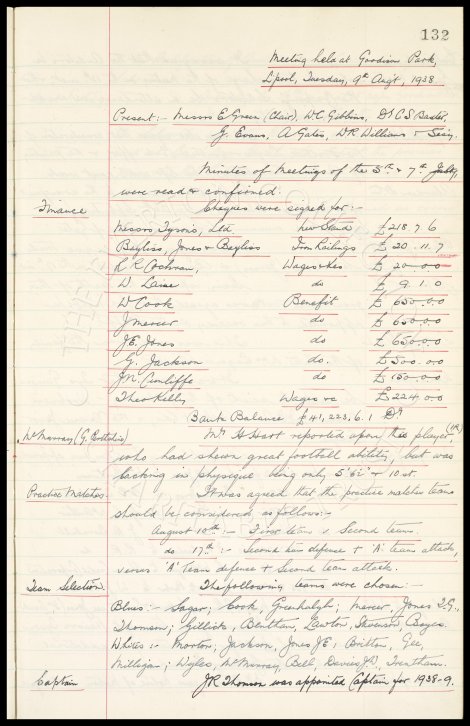 132
Meeting held at Goodison Park,
L'pool, Tuesday, 9th Augt, 1938
Present:- Messrs E. Green (Chair), W.C. Gibbins, Dr C.S. Baxter,
G. Evans, A. Gates, W.R. Williams & Secy.
Minutes of Meetings of the 5th & 7th July,
were read & confirmed.
Finance Cheques were signed for:-
Messrs Tysons, Ltd. New Stand £218. 7. 6
Bayliss, Jones & Bayliss Iron Railings £ 20. 11. 7
R.K. Cochran, Wages & Exes £ 20. 0. 0
W. Laine do £ 9. 1. 0
W Cook Benefit £ 650. 0. 0
J Mercer do £ 650. 0. 0
J.E. Jones do £ 650. 0. 0
G. Jackson do. £ 500. 0. 0
J.N. Cunliffe do £ 150. 0. 0
Theo Kelly Wages &c £ 224. 0. 0
Bank Balance £41,223. 6. 1 Dr
McMurray (G. ) Mr. H. Hart reported upon this player, (IR)
who had shewn great football ability, but was
lacking in physique being only 5' 6½" & 10 st.
Practice Matches. It was agreed that the practice matches teams
should be considered as follows:-
August 10th:- First team v. Second team.
do 17th:- Second team defence & 'A' team attack,
versus 'A' Team defence & Second team attack.
Team Selection. The following teams were chosen:-
Blues:- Sagar; Cook, Greenhalgh; Mercer, Jones T.G.,
Thomson; Gillick, Bentham, Lawton, Stevenson, Boyes.
Whites:- Morton; Jackson, Jones J.E; Britton, Gee,
Milligan; Wyles, McMurray, Bell, Davies J.), Trentham.
Captain J.R Thomson was appointed Captain for 1938-9.